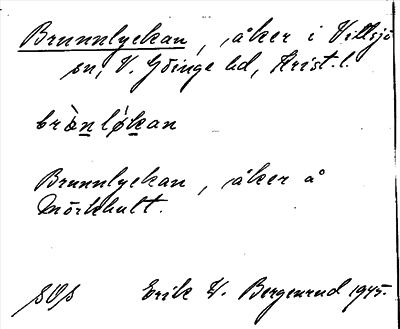 Brunnlyckan, åker i Vittsjö
sn, V. Göinge hd, Krist. l.
brònlýkan
Brunnlyckan, åker å
Mörkhult.
Erik W. Bergenrud 1945.